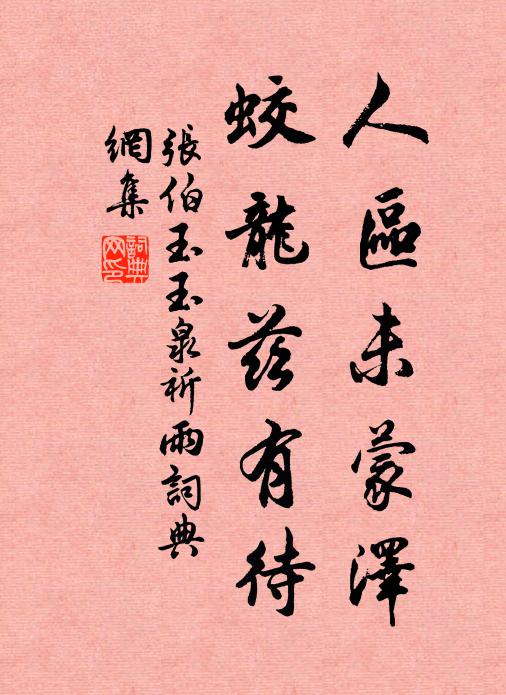 人區未蒙澤
蛟龍茲有待
張伯玉玉泉祈雨詞典
網集
詞典
网印